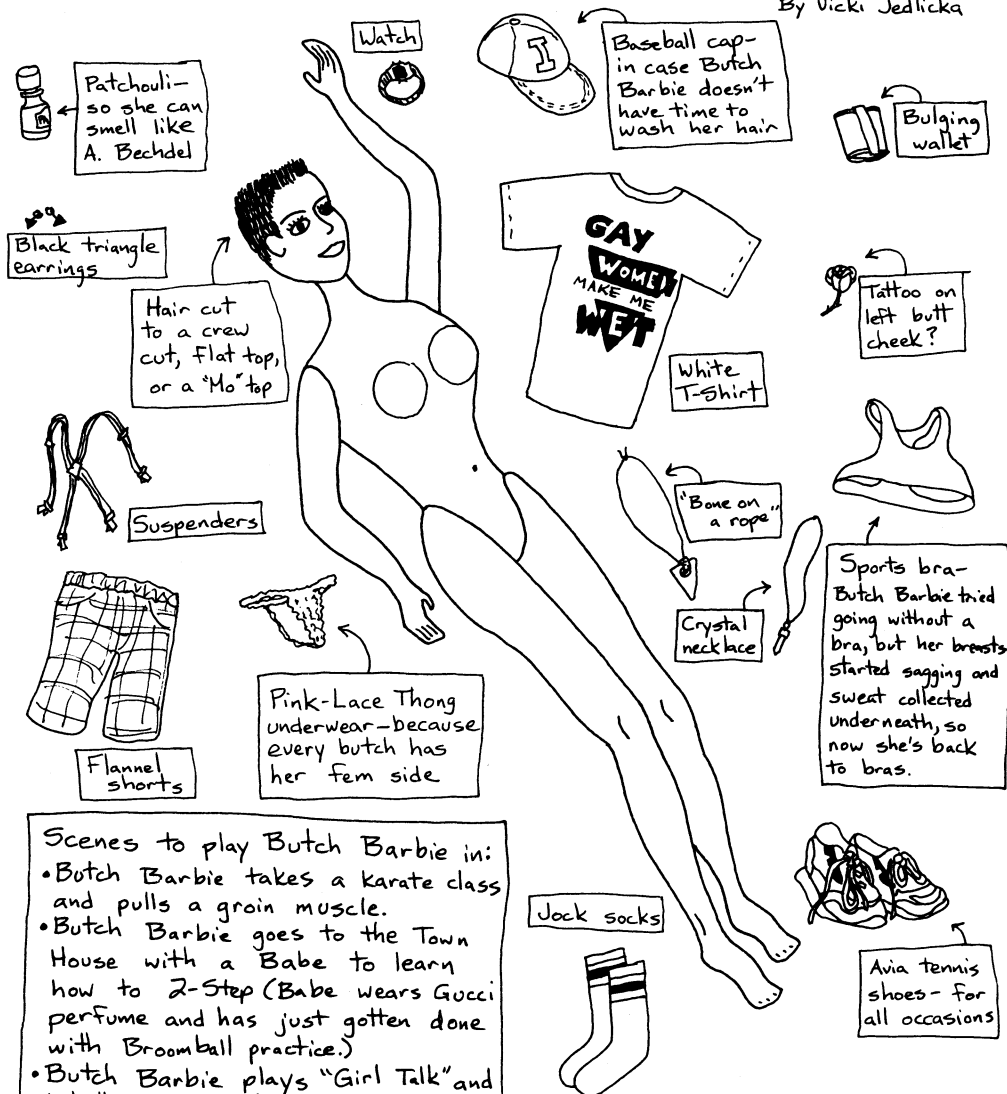 By Vicki Jedlicka
Watch
Patchouli—
so she can
smell like
A. Bechdel
I
Baseball cap-
in case Butch
Barbie doesn't
have time to
wash her hair
Bulging
wallet
Black triangle
earrings
Hair cut
to a crew
cut, flat top,
or a "Mo" top
GAY
WOMEN
MAKE ME
WET
White
T-Shirt
Tattoo on
left butt
cheek?
Suspenders
"Bone on
a rope"
Crystal
necklace
Sports bra-
Butch Barbie tried
going without a
bra, but her breasts
started sagging and
sweat collected
underneath, so
now she's back
to bras.
Flannel
shorts
Pink-Lace Thong
underwear—because
every butch has
her fem side
Scenes to play Butch Barbie in:
•Butch Barbie takes a karate class
and pulls a groin muscle.
•Butch Barbie goes to the Town
House with a Babe to learn
how to 2-Step (Babe wears Gucci
perfume and has just gotten done
with Broomball practice.)
•Butch Barbie plays "Girl Talk" and
Jock socks
Avia tennis
shoes- for
all occasions